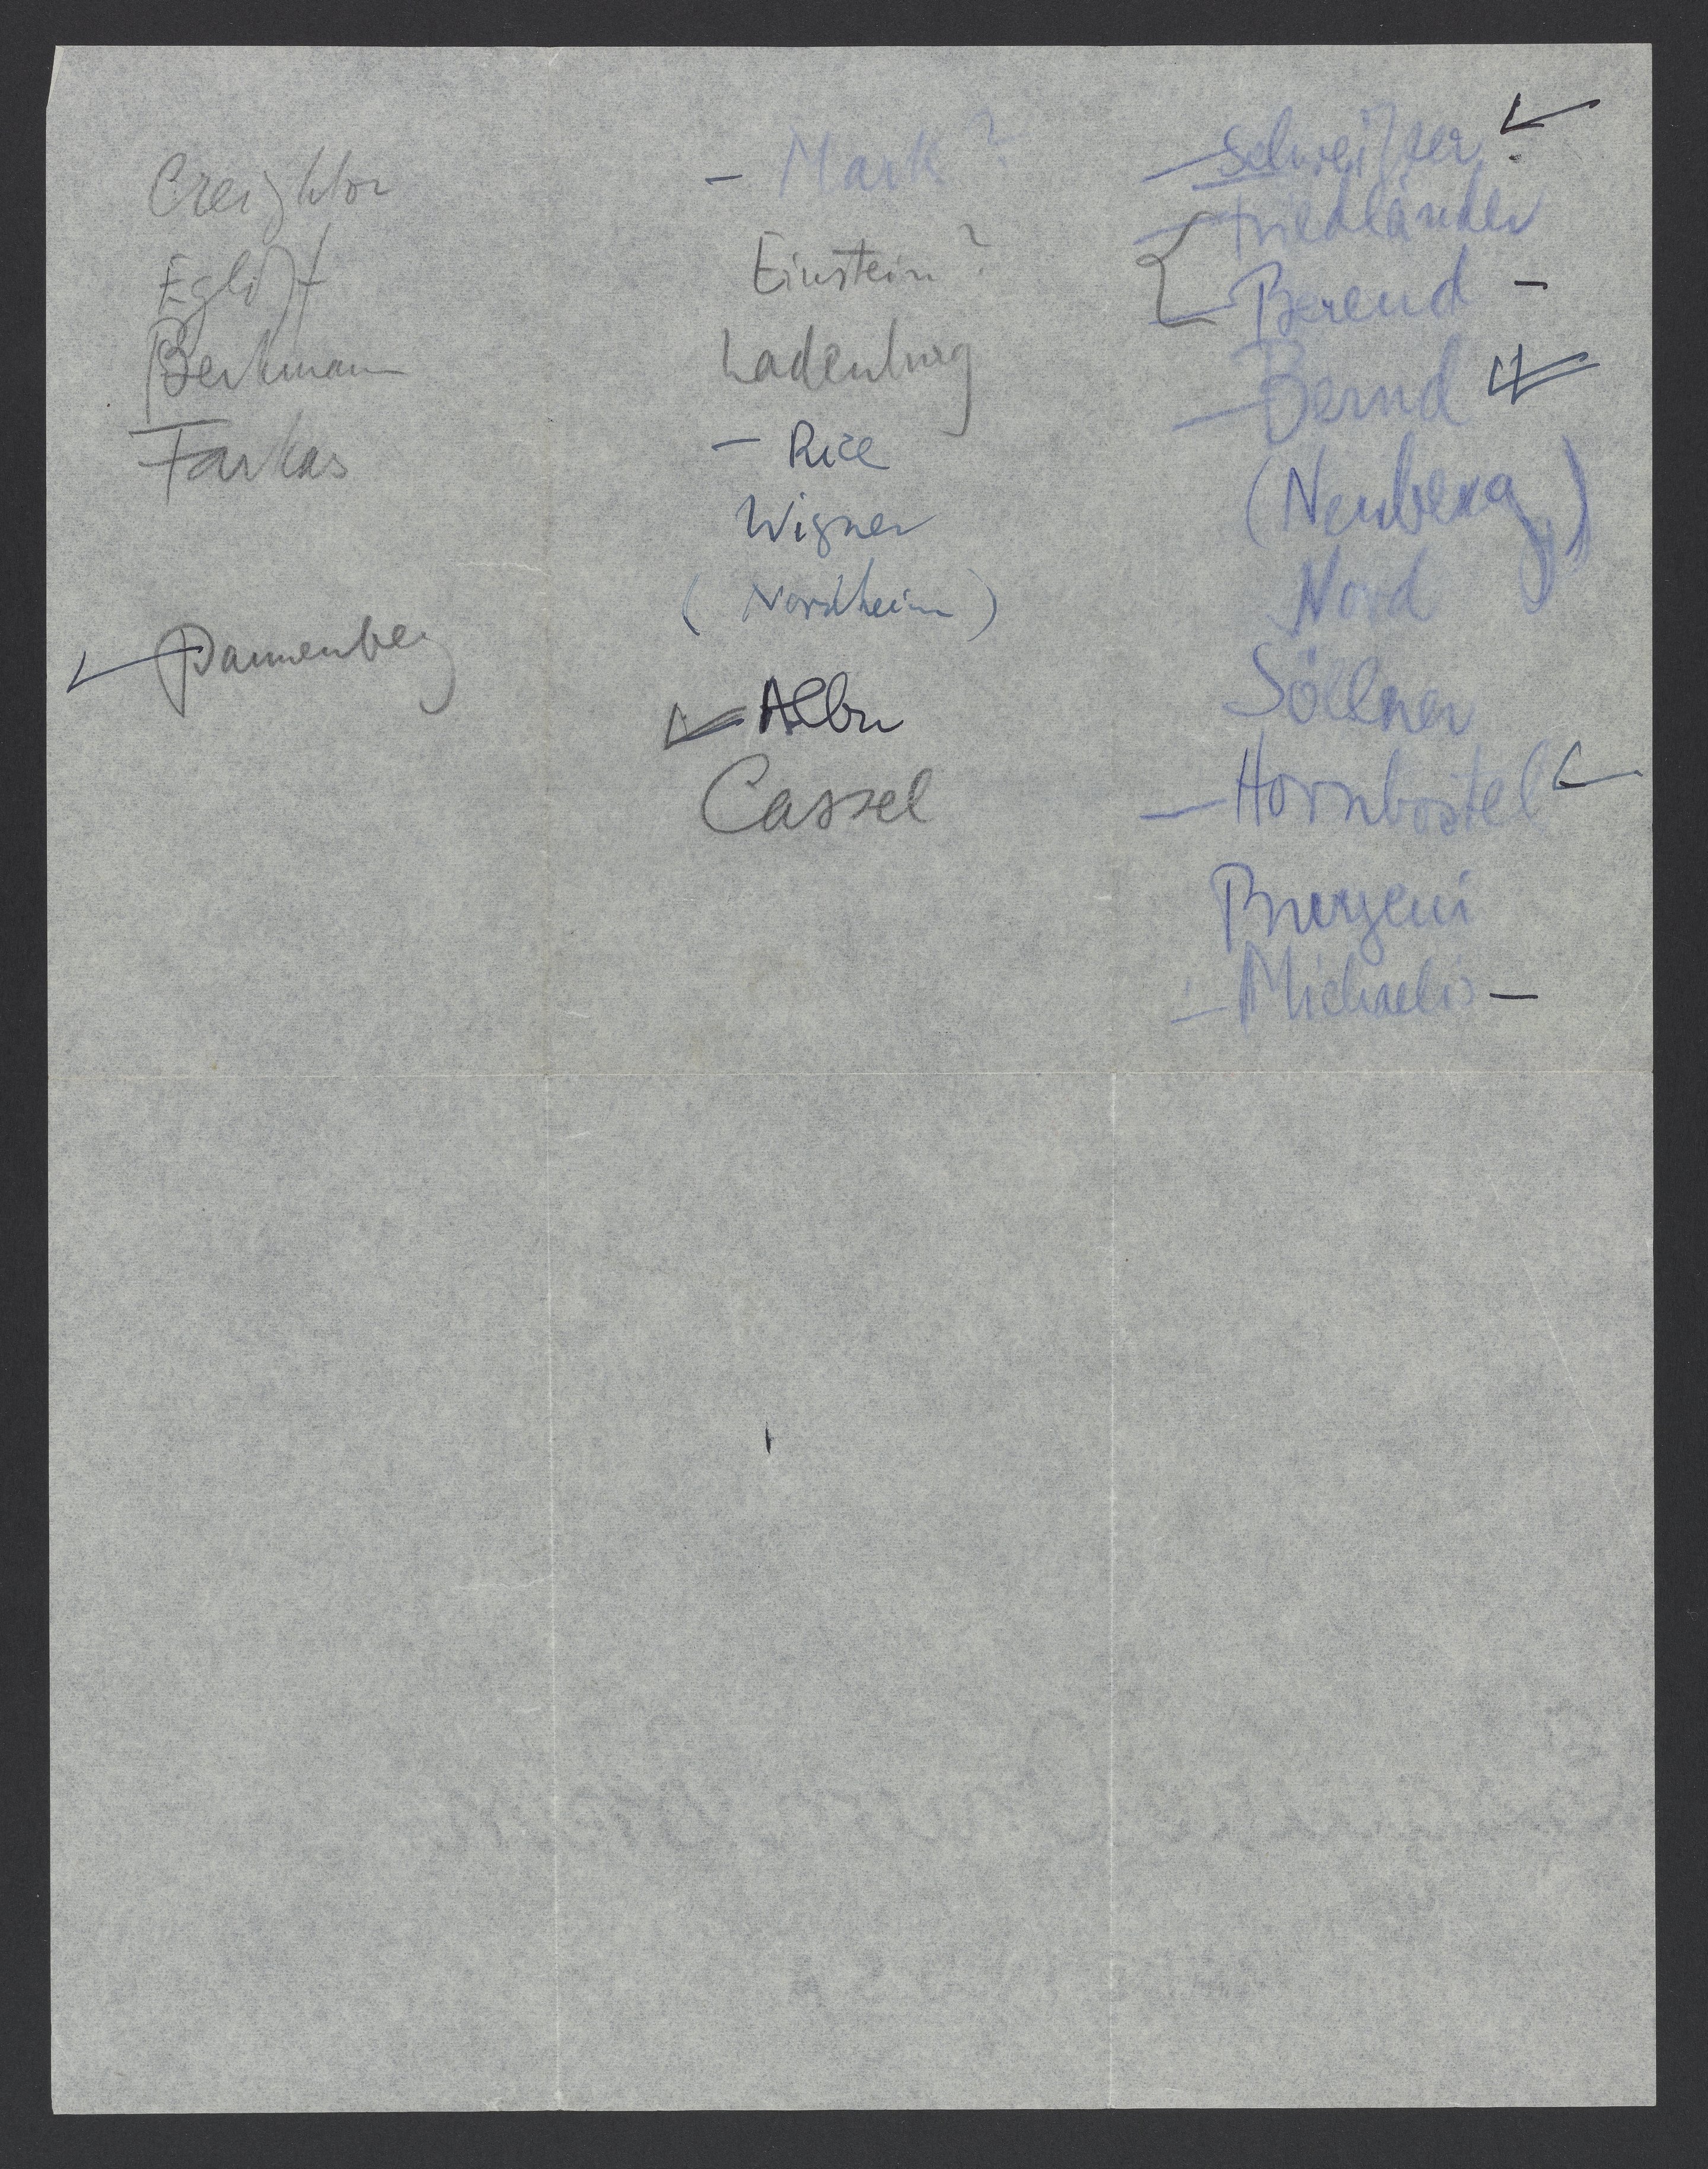 Creighton
Egloff
Berkman
Farkas
Dannenberg
– Mark ?
Einstein ?
Ladenburg
– Rice
Wigner
( Nordheim )
Albu
Cassel
– Schweitzer
– Friedländer
– Berend –
– Bernd
(Neuberg)
Nord
Söllner
– Hornbostel
– Michaelis –